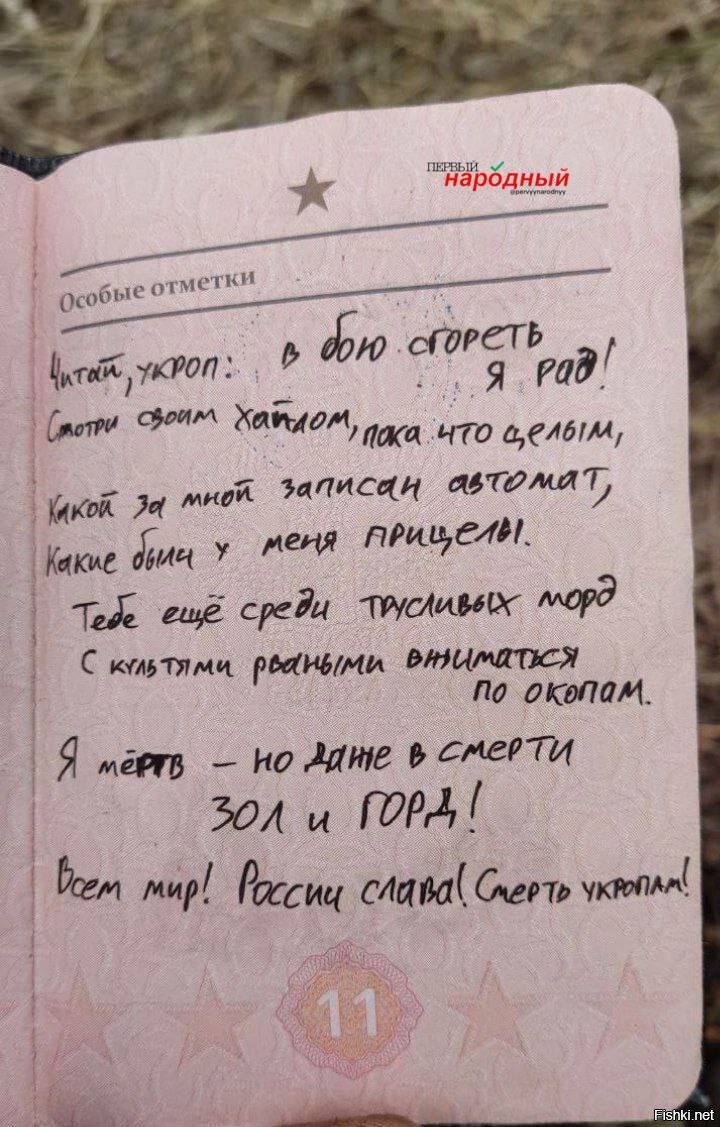 ПЕРВЫЙ
народный
@pervyynarodnyy
Особые отметки
Читай, укроп: в бою сгореть
я рад!
Смотри своим хайлом, пока что целым,
Какой за мной записан автомат,
Какие были у меня прицелы.
Тебе ещё среди трусливых морд
С культями рваными вжиматься
по окопам.
Я мёртв – но даже в смерти
ЗОЛ и ГОРД!
Всем мир! России слава! Смерть укропам!
11
Fishki.net